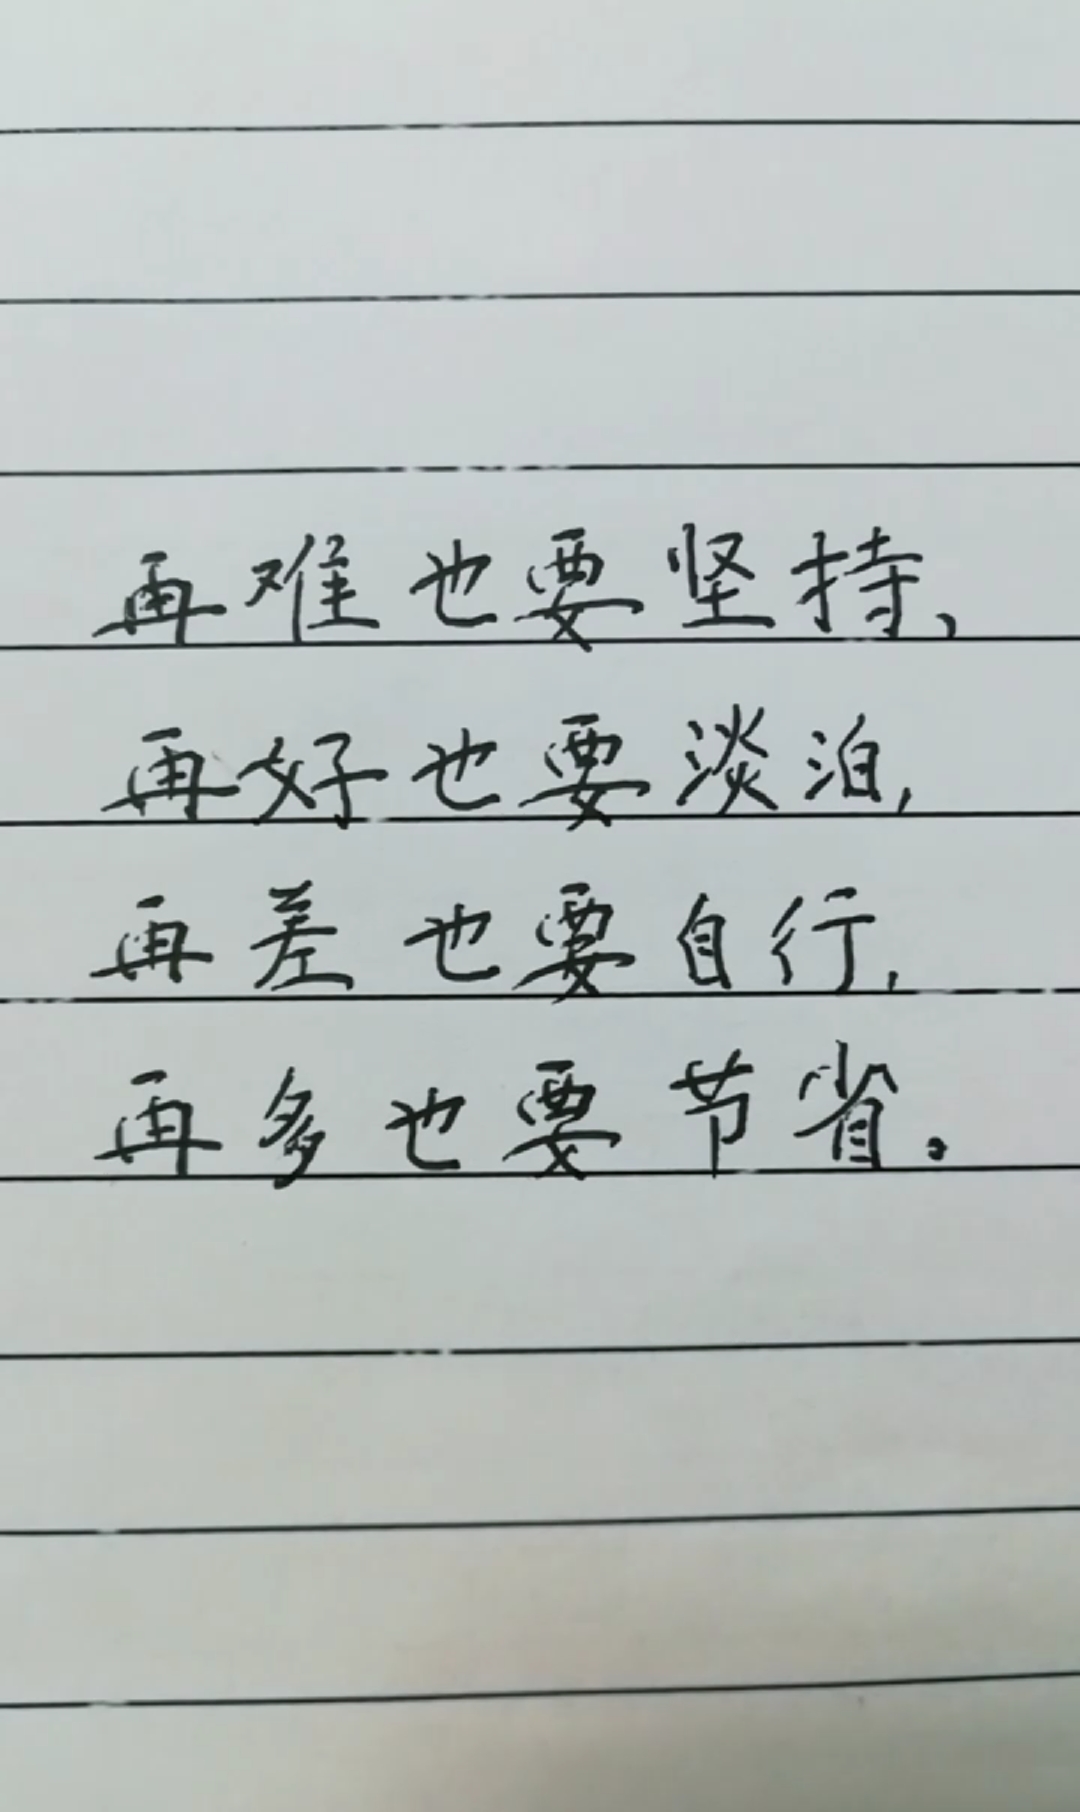 再难也要坚持，
再好也要淡泊，
再差也要自行，
再多也要节省。